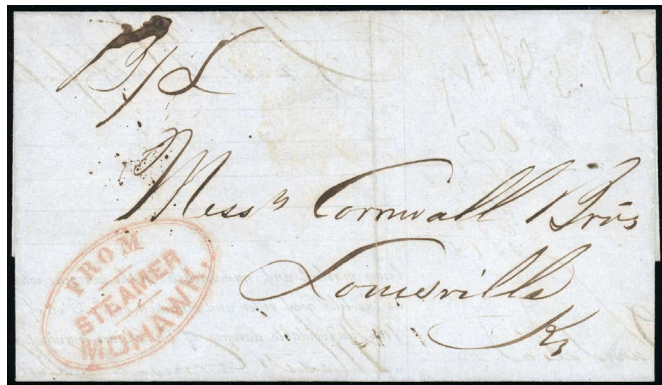 B/L
Mess^rs Cornwall Bros
Louisville
Ky
FROM
STEAMER
MOHAWK.